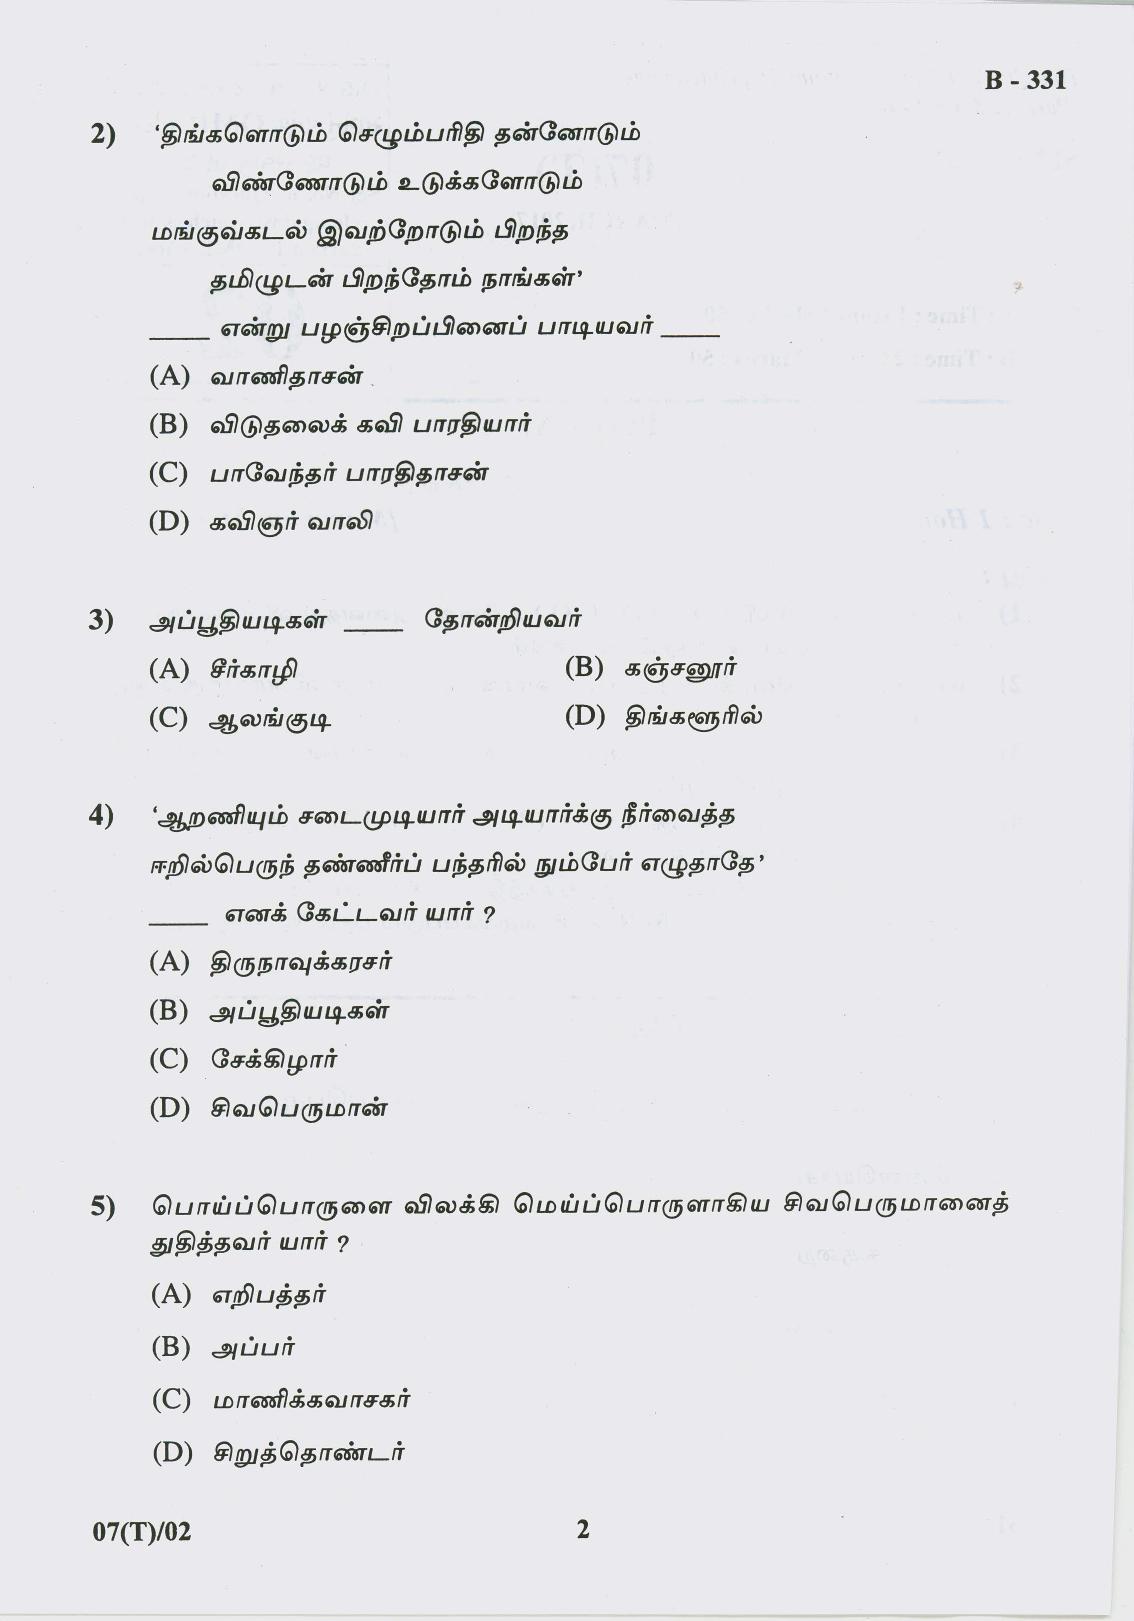 B - 331
2) ‘திங்களொடும் செழும்பரிதி தன்னோடும்
விண்ணோடும் உடுக்களோடும்
மங்குவ்கடல் இவற்றோடும் பிறந்த
தமிழுடன் பிறந்தோம் நாங்கள்’
_____ என்று பழஞ்சிறப்பினைப் பாடியவர் _____
(A) வாணிதாசன்
(B) விடுதலைக் கவி பாரதியார்
(C) பாவேந்தர் பாரதிதாசன்
(D) கவிஞர் வாலி
3) அப்பூதியடிகள் _____ தோன்றியவர்
(A) சீர்காழி (B) கஞ்சனூர்
(C) ஆலங்குடி (D) திங்களூரில்
4) ‘ஆறணியும் சடைமுடியார் அடியார்க்கு நீர்வைத்த
ஈறில்பெருந் தண்ணீர்ப் பந்தரில் நும்பேர் எழுதாதே’
_____ எனக் கேட்டவர் யார் ?
(A) திருநாவுக்கரசர்
(B) அப்பூதியடிகள்
(C) சேக்கிழார்
(D) சிவபெருமான்
5) பொய்ப்பொருளை விலக்கி மெய்ப்பொருளாகிய சிவபெருமானைத்
துதித்தவர் யார் ?
(A) எறிபத்தர்
(B) அப்பர்
(C) மாணிக்கவாசகர்
(D) சிறுத்தொண்டர்
07(T)/02 2